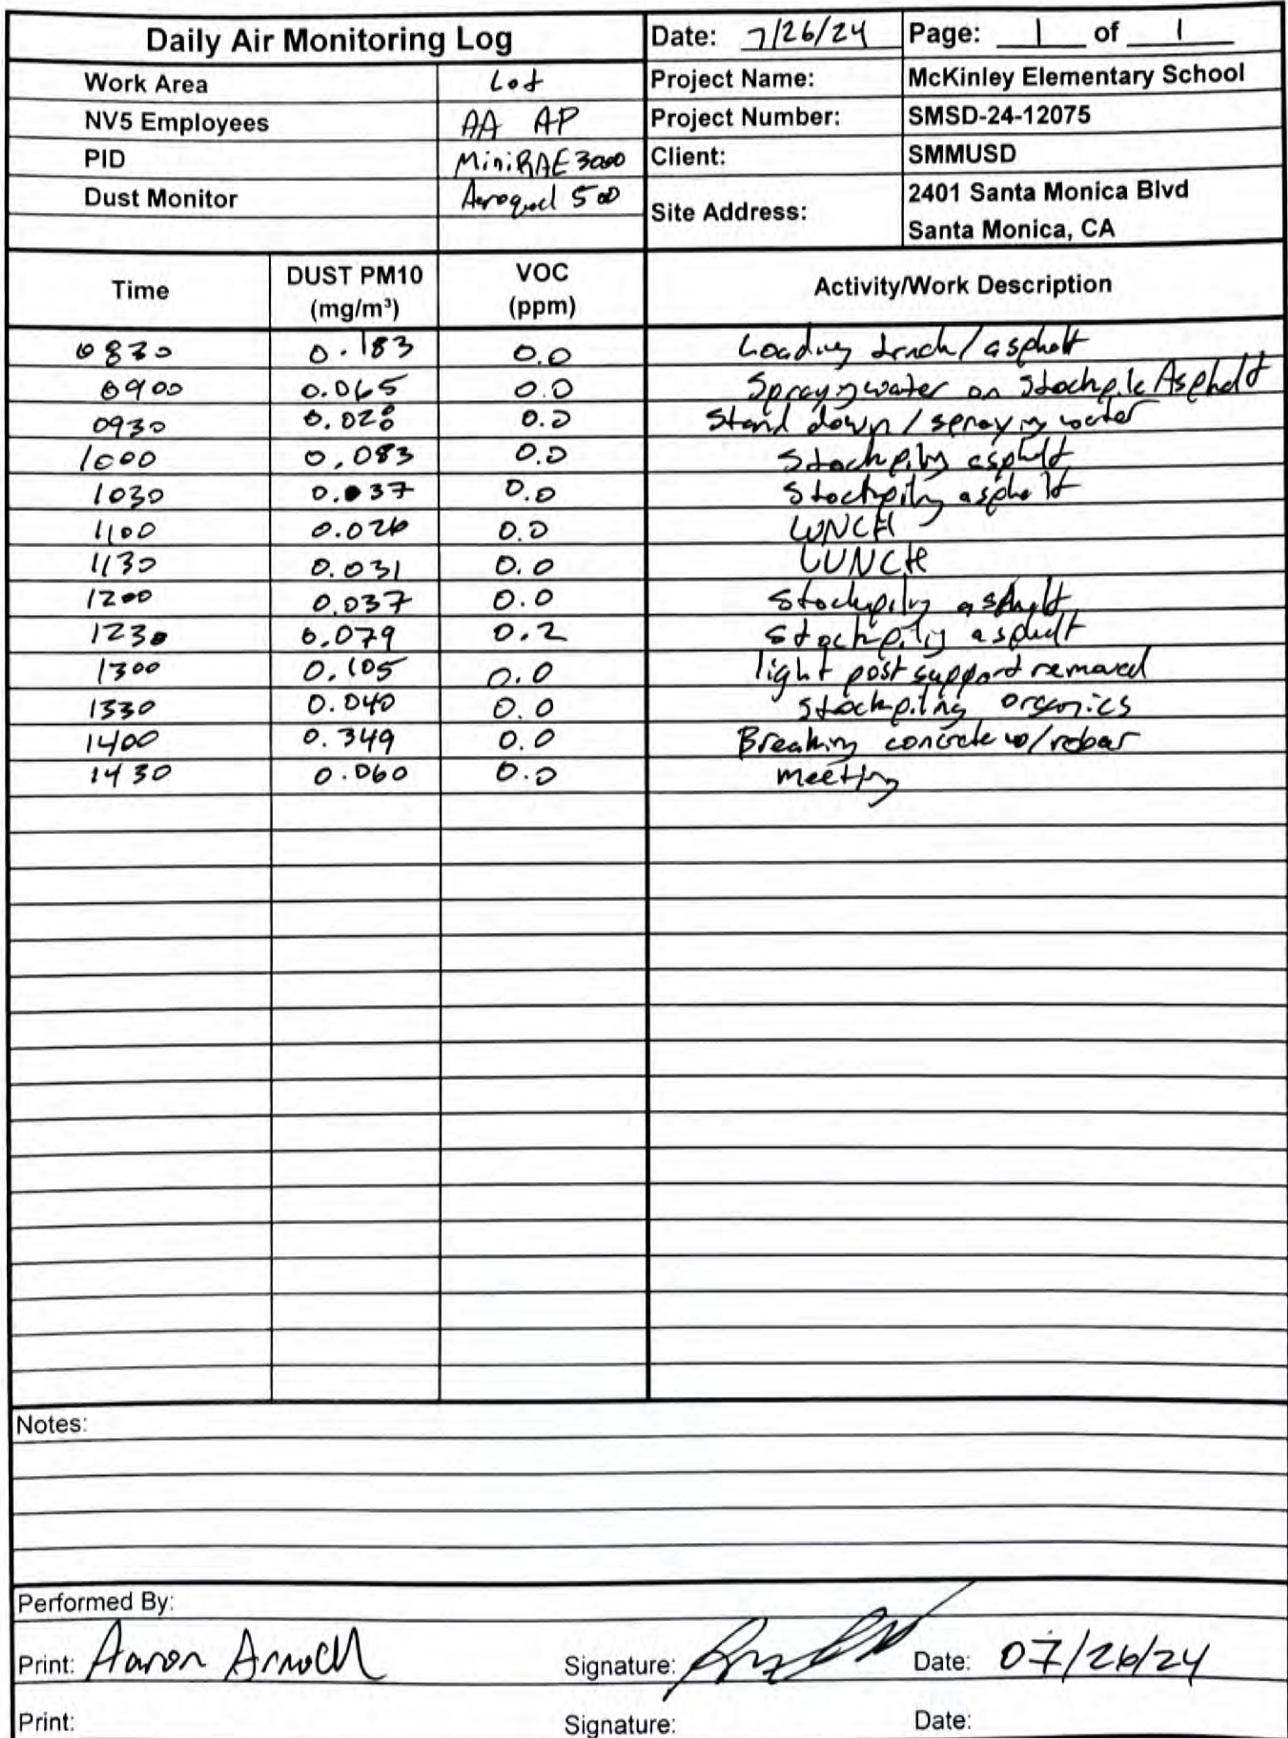 Daily Air Monitoring Log Date: 7/26/24 Page: 1 of 1
Work Area Lot Project Name: McKinley Elementary School
NV5 Employees AA AP Project Number: SMSD-24-12075
PID MiniRAE 3000 Client: SMMUSD
Dust Monitor Aeroqual 500 Site Address: 2401 Santa Monica Blvd
Santa Monica, CA
Time DUST PM10 (mg/m³) VOC (ppm) Activity/Work Description
0830 0.183 0.0 Loading / asphalt
0900 0.065 0.0 Spraying water on Stockpile Asphalt
0930 0.028 0.0 Stand down / spraying water
1000 0.083 0.0 Stockpiling asphalt
1030 0.037 0.0 Stockpiling asphalt
1100 0.026 0.0 LUNCH
1130 0.031 0.0 LUNCH
1200 0.037 0.0 Stockpiling asphalt
1230 0.079 0.2 Stockpiling asphalt
1300 0.105 0.0 light post support removed
1330 0.040 0.0 Stockpiling organics
1400 0.349 0.0 Breaking concrete w/rebar
1430 0.060 0.0 meeting
Notes:
Performed By:
Print: Aaron Signature: Date: 07/26/24
Print: Signature: Date: